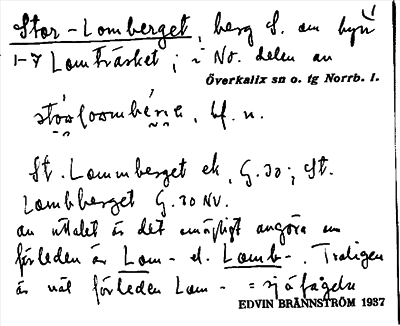 Stor-Lomberget, berg S. om byn
1-7 Lomträsket; i No. delen av
Överkalix sn o. tg Norrb. l.
bf. n.
St. Lommberget ek. G.30; St.
Lombberget G.30 NV.
av uttalet är det omöjligt avgöra om
förleden är Lom- el. Lomb-. Troligen
är väl förleden Lom- = sjöfågeln
EDVIN BRÄNNSTRÖM 1937